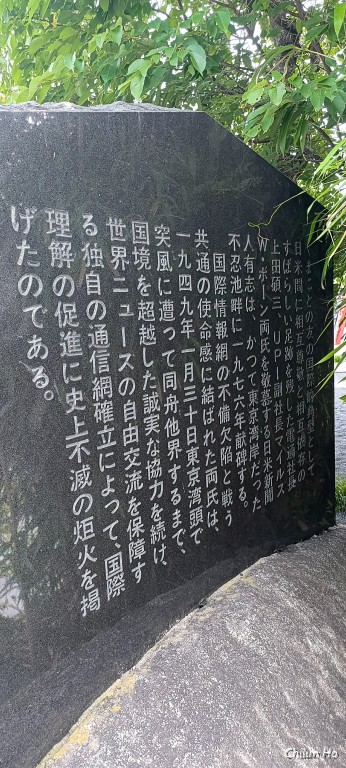 まことの
日米間に相互尊敬と相互信頼の
すばらしい足跡を残した電通社長
上田碩三、UPI副社長マイルス
W・ボーン両氏を敬慕する日米新聞
人有志は、かつて東京湾岸だった
不忍池畔に一九七二年献碑する。
国際情報網の不備欠陥と戦う
共通の使命感に結ばれた両氏は、
一九四九年一月三十日東京湾頭で
突風に遭って同舟他界するまで、
国境を超越した誠実な協力を続け、
世界ニュースの自由交流を保障す
る独自の通信網確立によって、国際
理解の促進に史上不滅の炬火を掲
げたのである。
Chiům Ho